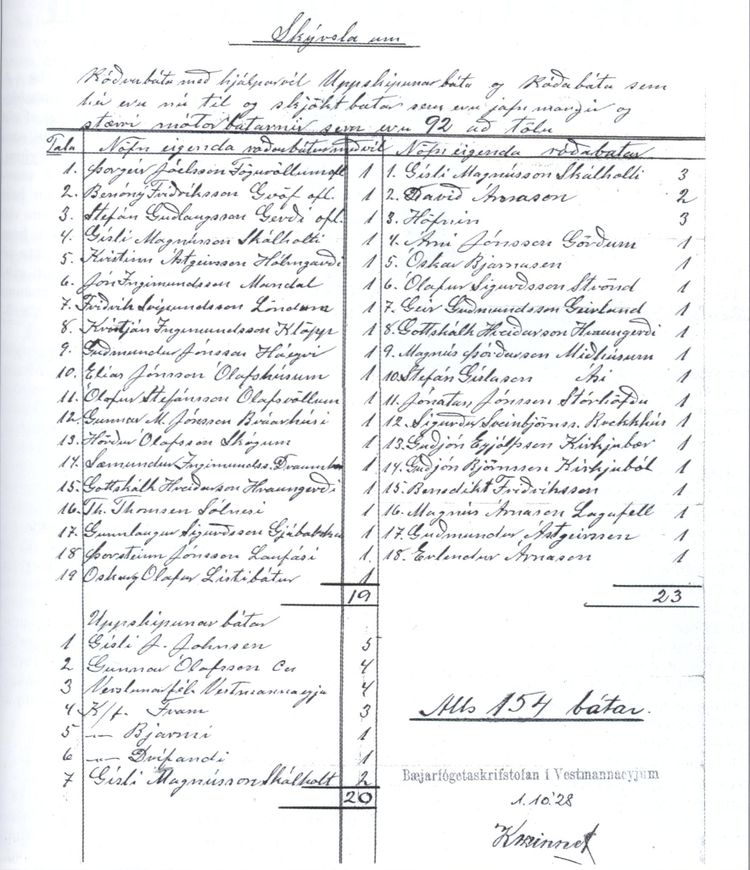 Skýrsla um
Róðrabáta með hjálparvél Uppskipunar báta og Róðabátu sem
hér eru nú til og skjökt batar sem eru jafn margir og
stærri mótorbátarnir sem eru 92 að tölu
Tala Nöfn eigenda róðrarbátur með vél
1. Þorgeir Jóelsson Fögruvöllum ofl 1
2. Benóný Friðriksson Gröf ofl. 1
3. Stefán Guðlaugsson Gerði ofl. 1
4. Gísli Magnússon Skálholti 1
5. Kristinn Ástgeirsson Hólmgarði 1
6. Jón Ingimundsson Mandal 1
7. Friðrik Svipmundsson Löndum 1
8. Kristján Ingimundsson Klöpp 1
9. Guðmundur Jónsson Háeyri 1
10. Elías Jónsson Ólafshúsum 1
11. Ólafur Stefánsson Ólafsvöllum 1
12. Gunnar M. Jónsson Brúarhúsi 1
13. Hörður Ólafsson Skógum 1
14. Sæmundur Ingimundss. 1
15. Gottskálk Hreiðarson Hraungerði 1
16. Th. Thomsen Sólnesi 1
17. Gunnlaugur Sigurðsson Gjábakka 1
18 Þorsteinn Jónsson Laufási 1.
19 Ólafur Listibátur 1
19
Nöfn eigenda róðabatar
1. Gísli Magnússon Skálholti 3
2. Davíð Árnason 2
3. Höfnin 3
4. Árni Jónsson Görðum 1
5. Óskar Bjarnasen 1
6. Ólafur Sigurðsson Strönd 1
7. Geir Guðmundsson Geirland 1
8. Gottskálk Hreiðarson Hraungerði 1
9. Magnús Þórðarson Miðhúsum 1
10. Stefán Gíslason Ási 1
11. Jónatan Jónsson Stórhöfða 1
12. Sigurður Sveinbjörnss. Brekkhús 1
13. Guðjón Eyjólfsson Kirkjubær 1
14. Guðjón Björnsson Kirkjuból 1
15. Benedikt Friðriksson 1
16. Magnús Árnason Lagafell 1
17. Guðmundur Ástgeirsson 1
18. Erlendur Árnason 1
23
Uppskipunar bátar
1 Gísli J. Johnsen 5
2 Gunnar Ólafsson Co 4
3 Verslunarfél. Vestmannaeyja 4
4 K/f. Fram 3
5 —"— Bjarmi 1
6 —"— Drífandi 1
7 Gísli Magnússon Skálholt 2
20
Alls 154 bátar.
Bæjarfógetaskrifstofan í Vestmannaeyjum
1.10.28